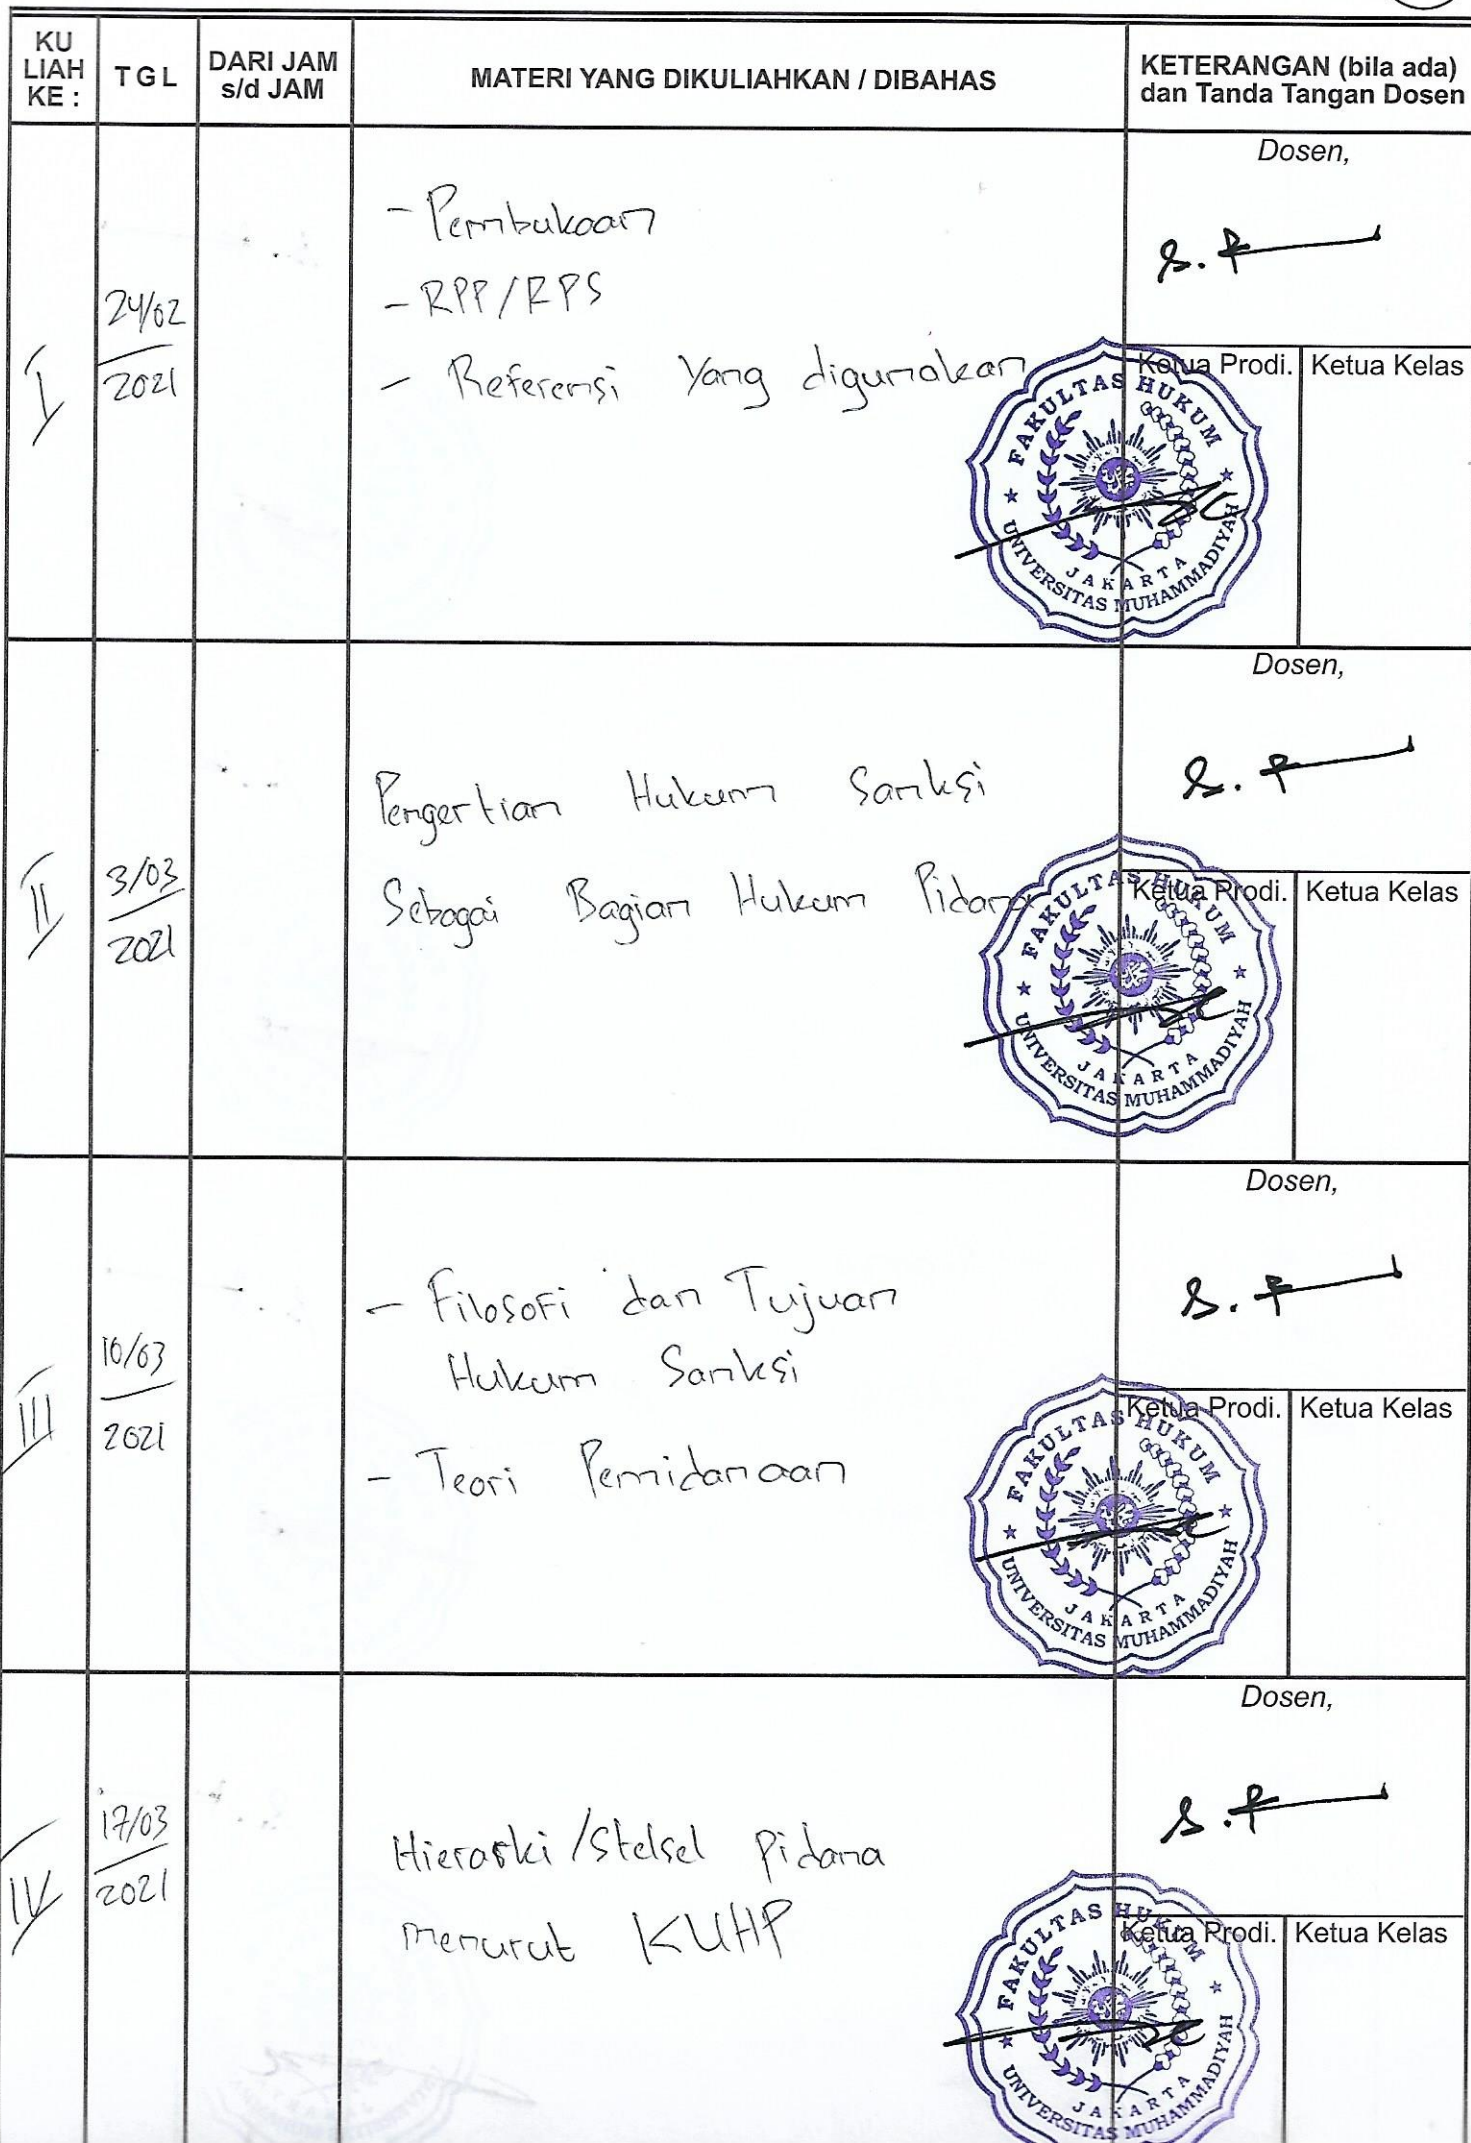 KU
LIAH
KE :
TGL
DARI JAM
s/d JAM
MATERI YANG DIKULIAHKAN / DIBAHAS
KETERANGAN (bila ada)
dan Tanda Tangan Dosen
I
24/02
2021
- Pembukaan
- RPP/RPS
- Referensi Yang digunakan
Dosen,
Ketua Prodi.
Ketua Kelas
FAKULTAS HUKUM
JAKARTA
UNIVERSITAS MUHAMMADIYAH
II
3/03
2021
Pengertian Hukum Sanksi
Sebagai Bagian Hukum Pidana
Dosen,
Ketua Prodi.
Ketua Kelas
FAKULTAS HUKUM
JAKARTA
UNIVERSITAS MUHAMMADIYAH
III
10/03
2021
- Filosofi dan Tujuan
Hukum Sanksi
- Teori Pemidanaan
Dosen,
Ketua Prodi.
Ketua Kelas
FAKULTAS HUKUM
JAKARTA
UNIVERSITAS MUHAMMADIYAH
IV
17/03
2021
Hierarki/Stelsel pidana
menurut KUHP
Dosen,
Ketua Prodi.
Ketua Kelas
FAKULTAS HUKUM
JAKARTA
UNIVERSITAS MUHAMMADIYAH